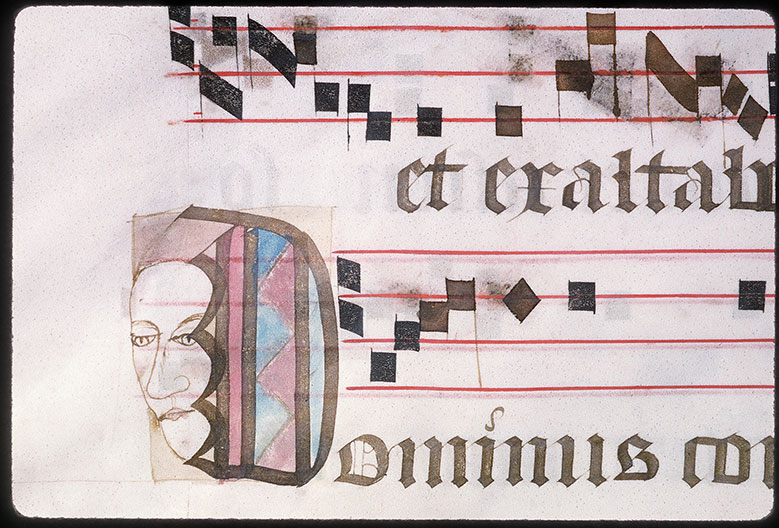 et exaltab
Dominus co